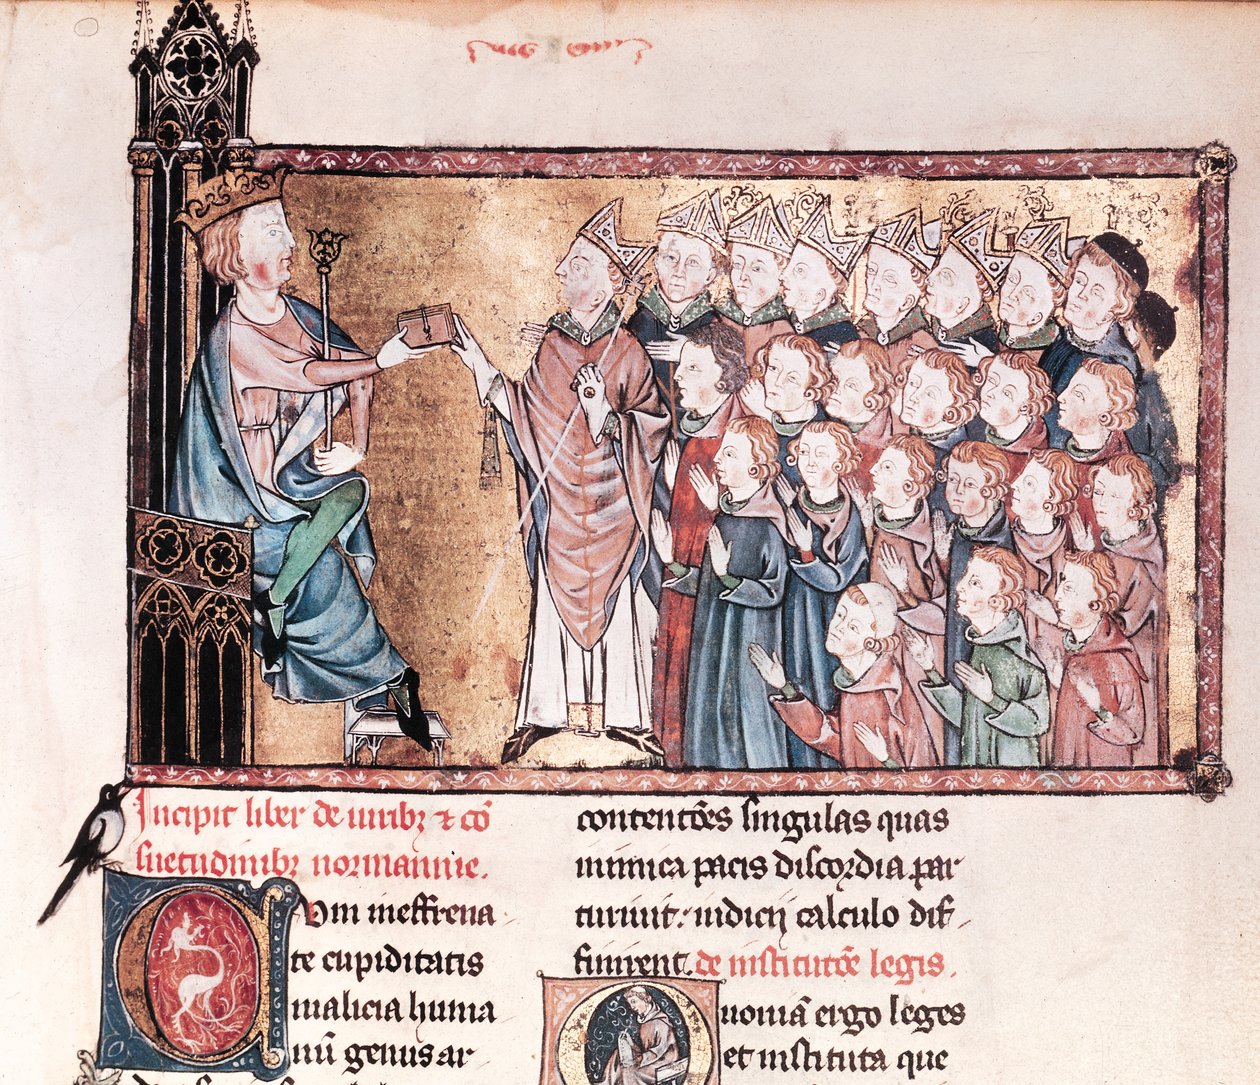 Incipit liber de iuribꝫ ⁊ cō
suetudinibꝫ normannie.
Cum ineffrena
te cupiditatis
malicia huma
nū genus ar
contentōes singulas quas
inimica pacis discordia par
turiunt: iudicij calculo dif
finirent. de institutōe legis.
Quoniā ergo leges
et instituta que